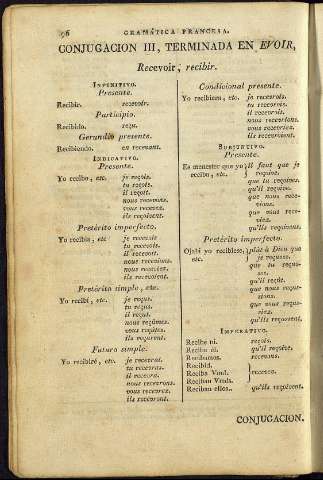 96 GRAMÁTICA FRANCESA.
CONJUGACION III, TERMINADA EN EVOIR,
Recevoir, recibir.
INFINITIVO.
Presente.
Recibir. recevoir.
Participio.
Recibido. reçu.
Gerundio presente.
Recibiendo. en recevant.
INDICATIVO.
Presente.
Yo recibo, etc. je reçois.
tu reçois.
il reçoit.
nous recevons.
vous recevez.
ils reçoivent.
Pretérito imperfecto.
Yo recibia, etc je recevois
tu recevois.
il recevoit.
nous recevions.
vous receviez.
ils recevoient.
Pretérito simple, etc.
Yo recibí, etc. je reçus.
tu reçus.
il reçut.
nous reçûmes.
vous reçûtes.
ils reçurent.
Futuro simple.
Yo recibiré, etc. je recevrai.
tu recevras.
il recevra.
nous recevrons.
vous recevrez.
ils recevront.
Condicional presente.
Yo recibiera, etc. je recevrois.
tu recevrois.
il recevroit.
nous recevrions.
vous recevriez.
ils recevroient.
SUBJUNTIVO.
Presente.
Es menester que yo il faut que je
reciba, etc. reçoive.
que tu reçoives.
qu'il reçoive.
que nous rece-
vions.
que vous rece-
viez.
qu'ils reçoivent.
Pretérito imperfecto.
Ojalá yo recibiese, plût à Dieu que
etc. je reçusse.
que tu reçus-
ses.
qu'il reçût.
que nous reçus-
sions.
que vous reçus-
siez.
qu'ils reçussent.
IMPERATIVO.
Recibe reçois.
Reciba qu'il reçoive.
Recibamos. recevons.
Recibid.
Reciba Vmd. recevez.
Reciban Vmds.
Reciban ellos.. qu'ils reçoivent.
CONJUGACION.